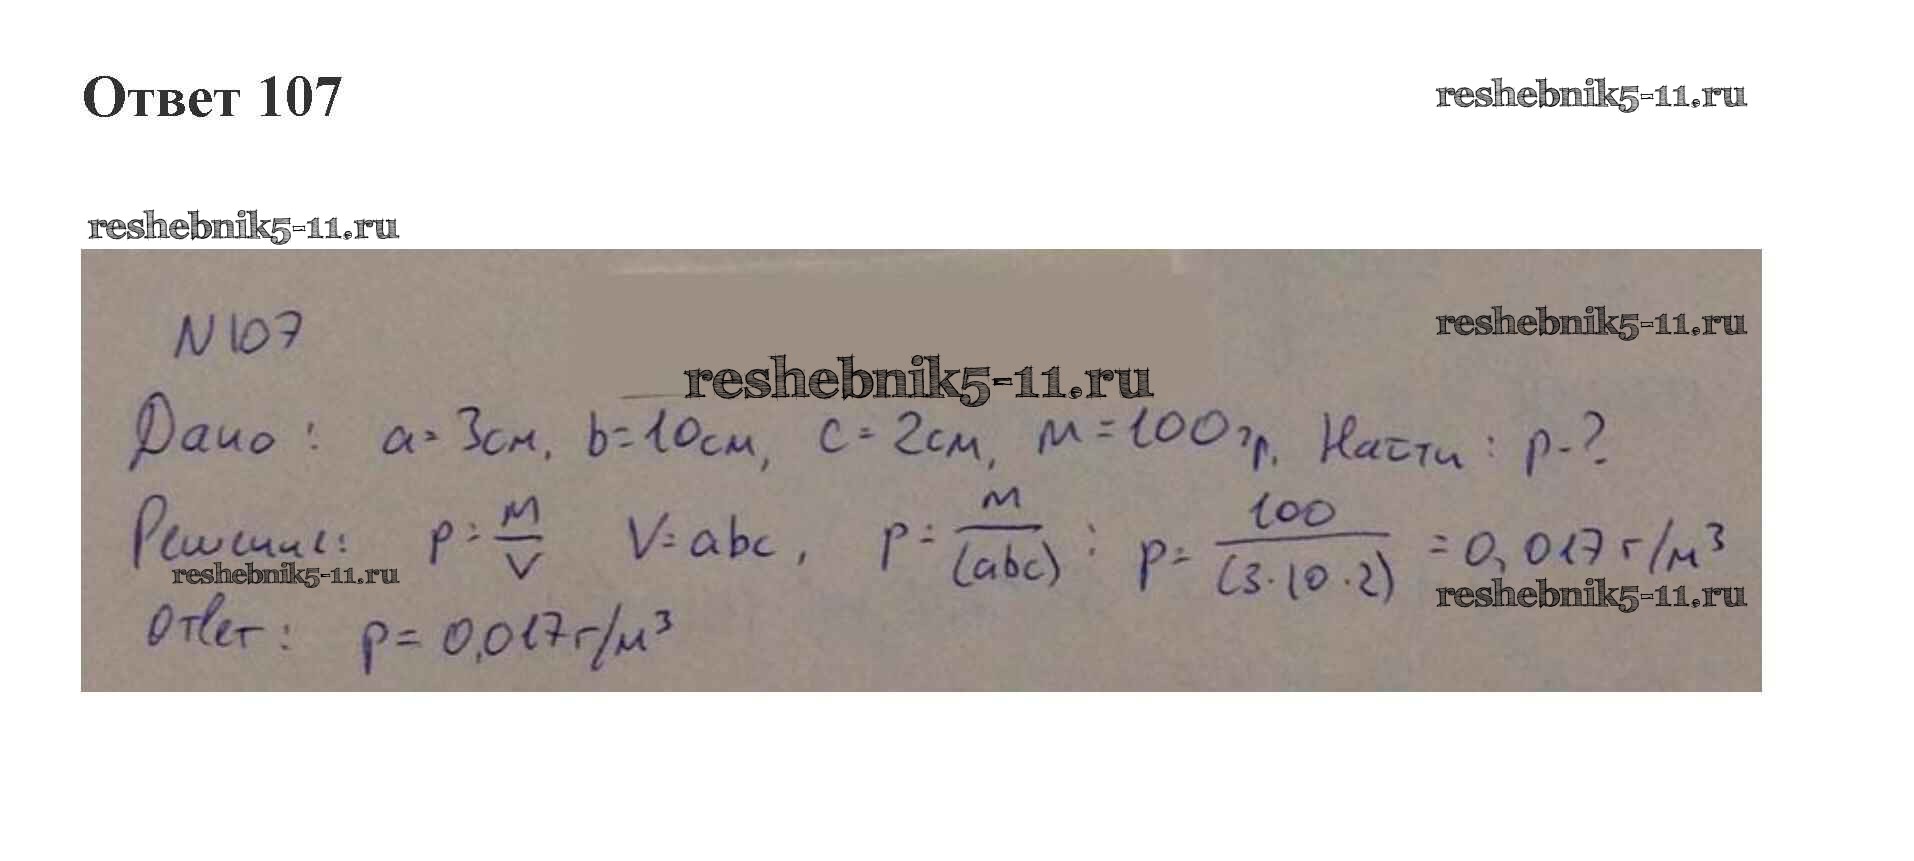 Ответ 107
reshebnik5-11.ru
reshebnik5-11.ru
N 107
reshebnik5-11.ru
reshebnik5-11.ru
Дано: a=3см, b=10см, c=2см, м=100гр. Найти: p-?
Решение: p=м/V V=abc, p=м/(abc): p=100/(3·10·2)=0,017г/м³
reshebnik5-11.ru
reshebnik5-11.ru
Ответ: p=0,017г/м³